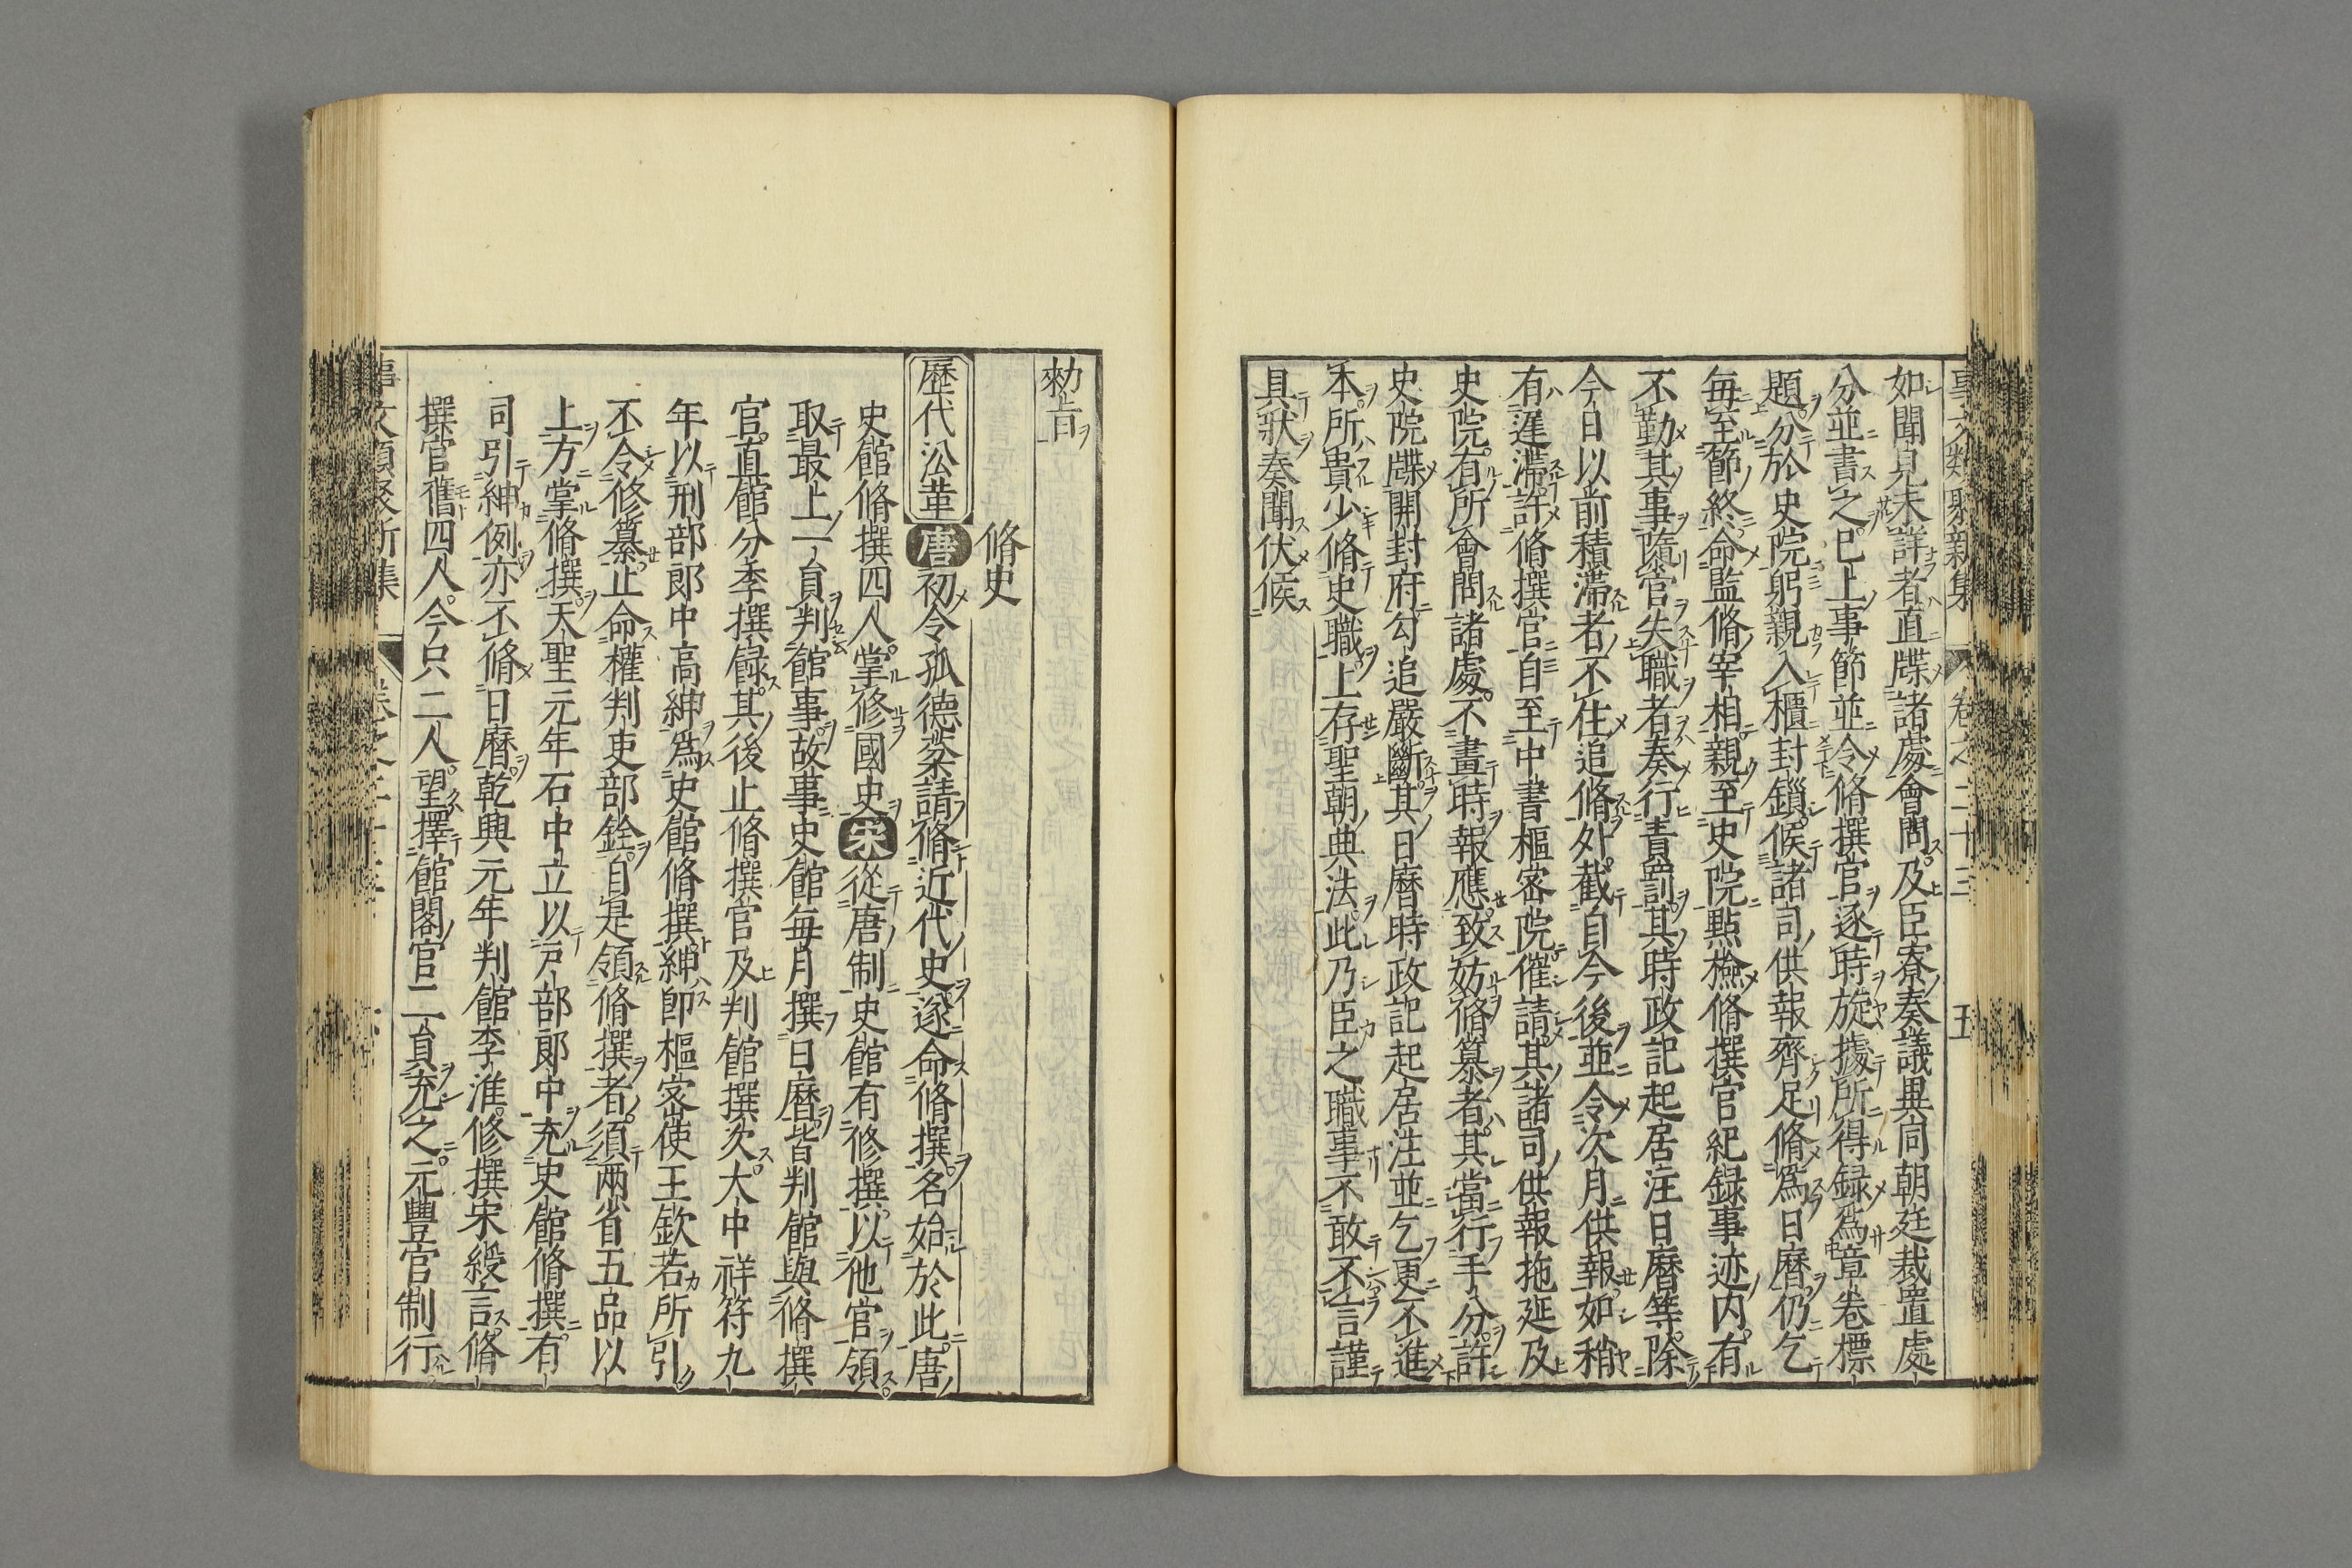 事文類聚新集 卷之二十三 五
如聞見未詳者直牒諸處會問及臣寮奏議異同朝廷裁置處
分並書之已上事節並令脩撰官逐時旋據所得録爲章卷標
題分於史院躬親入櫃封鎖候諸司供報齊足脩爲日曆仍乞
毎至節終命監脩宰相親至史院點檢脩撰官紀録事迹内有
不勤其事隳官失職者奏行責罰其時政記起居注日曆等除
今日以前積滯者不住追脩外截自今後並令次月供報如稍
有遲滯許脩撰官自至中書樞密院催請其諸司供報拖延及
史院有所會問諸處不畫時報應致妨脩纂者其當行手分許
史院牒開封府勾追嚴斷其日曆時政記起居注並乞更不進
本所貴少脩史職上存聖朝典法此乃臣之職事不敢不言謹
具狀奏聞伏候
勑旨
脩史
歷代沿革 唐初令狐德棻請脩近代史遂命脩撰名始於此唐
史館脩撰四人掌修國史宋從唐制史館有修撰以他官領
取最上一員判館事故事史館毎月撰日曆皆判館與脩撰
官直館分季撰録其後止脩撰官及判館撰次大中祥符九
年以刑部郎中高紳爲史館脩撰紳即樞密使王欽若所引
不令修纂止命權判吏部銓自是領脩撰者須兩省五品以
上方掌脩撰天聖元年石中立以戸部郎中充史館脩撰有
司引紳例亦不脩日曆乾興元年判館李淮修撰宋綬言脩
撰官舊四人今只二人望擇館閣官二員充之元豐官制行